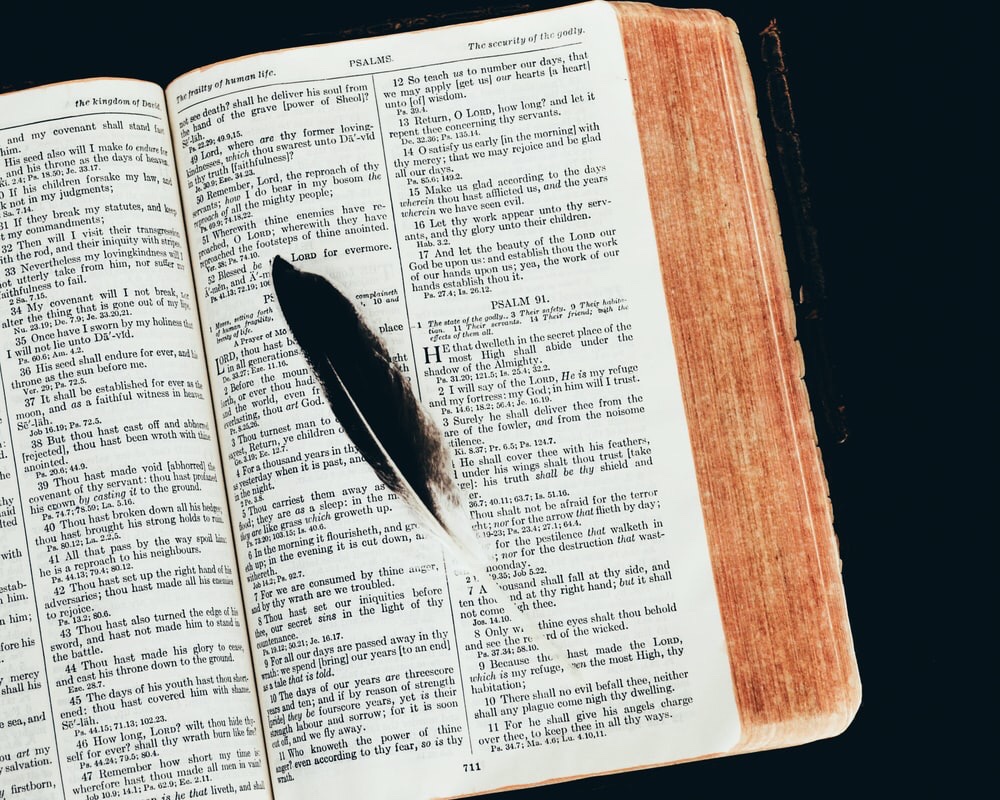 with
him.
n him;
fore his
mercy
shall his
e sea, and
ou art my
salvation.
firstborn,
the kingdom of David.
and my covenant shall stand fast
him.
His seed also will I make to endure for
and his throne as the days of heaven.
If his children forsake my law, and
k not in my judgments;
31 If they break my statutes, and keep
t my commandments;
32 Then will I visit their transgression
the rod, and their iniquity with stripes.
33 Nevertheless my lovingkindness will I
not utterly take from him, nor suffer my
faithfulness to fail.
2 Sa. 7.15.
34 My covenant will I not break, nor
alter the thing that is gone out of my lips.
Nu. 23.19; De. 7.9; Je. 33.20,21.
35 Once have I sworn by my holiness that
I will not lie unto Dā'-vĭd.
Ps. 60.6; Am. 4.2.
36 His seed shall endure for ever, and his
throne as the sun before me.
Ver. 29; Ps. 72.5.
37 It shall be established for ever as the
moon, and as a faithful witness in heaven.
Sē'-läh.
Job 16.19; Ps. 72.5.
38 But thou hast cast off and abhorred
[rejected], thou hast been wroth with thine
anointed.
Ps. 20.6; 44.9.
39 Thou hast made void [abhorred] the
covenant of thy servant: thou hast profaned
his crown by casting it to the ground.
Ps. 74.7; 78.59; La. 5.16.
40 Thou hast broken down all his hedges;
thou hast brought his strong holds to ruin.
Ps. 80.12; La. 2.2,5.
41 All that pass by the way spoil him:
he is a reproach to his neighbours.
Ps. 44.13; 79.4; 80.12.
42 Thou hast set up the right hand of his
adversaries; thou hast made all his enemies
to rejoice.
Ps. 13.2; 80.6.
43 Thou hast also turned the edge of his
sword, and hast not made him to stand in
the battle.
44 Thou hast made his glory to cease,
and cast his throne down to the ground.
Eze. 28.7.
45 The days of his youth hast thou short-
ened: thou hast covered him with shame.
Sē'-läh.
Ps. 44.15; 71.13; 102.23.
46 How long, LORD? wilt thou hide thy-
self for ever? shall thy wrath burn like fire?
Ps. 44.24; 79.5; 80.4.
47 Remember how short my time is:
wherefore hast thou made all men in vain?
Job 10.9; 14.1; Ps. 62.9; Ec. 2.11.
is he that liveth, and shall
The frailty of human life.
PSALMS.
The security of the godly.
not see death? shall he deliver his soul from
the hand of the grave [power of Sheol]?
Sē'-läh.
Ps. 22.29; 49.9,15.
49 Lord, where are thy former loving-
kindnesses, which thou swarest unto Dā'-vĭd
in thy truth [faithfulness]?
Je. 30.9; Eze. 34.23.
50 Remember, Lord, the reproach of thy
servants; how I do bear in my bosom the
reproach of all the mighty people;
Ps. 69.9; 74.18,22.
51 Wherewith thine enemies have re-
proached, O LORD; wherewith they have
reproached the footsteps of thine anointed.
Ver. 38; Ps. 74.10.
52 Blessed be LORD for evermore.
Ā'-mĕn, and Ā'-m
Ps. 41.13; 72.19; 106
PS
1 Moses, setting forth complaineth
of human fragility, 10 and
brevity of life.
A Prayer of Mō place
LORD, thou hast b
in all generations
De. 33.27; Eze. 11.16.
2 Before the moun ght
forth, or ever thou had
and the world, even fr
everlasting, thou art God.
Pr. 8.25,26.
3 Thou turnest man to
sayest, Return, ye children o
Ge. 3.19; Ec. 12.7.
4 For a thousand years in thy
as yesterday when it is past, and
in the night.
2 Pe. 3.8.
5 Thou carriest them away as
flood; they are as a sleep: in the m
they are like grass which groweth up.
Ps. 73.20; 103.15; Is. 40.6.
6 In the morning it flourisheth, and gr
eth up; in the evening it is cut down, a
withereth.
Job 14.2; Ps. 92.7.
7 For we are consumed by thine anger,
and by thy wrath are we troubled.
8 Thou hast set our iniquities before
thee, our secret sins in the light of thy
countenance.
Ps. 19.12; 50.21; Je. 16.17.
9 For all our days are passed away in thy
wrath: we spend [bring] our years [to an end]
as a tale that is told.
10 The days of our years are threescore
years and ten; and if by reason of strength
[pride] they be fourscore years, yet is their
strength labour and sorrow; for it is soon
cut off, and we fly away.
11 Who knoweth the power of thine
anger? even according to thy fear, so is thy
wrath.
12 So teach us to number our days, that
we may apply [get us] our hearts [a heart]
unto [of] wisdom.
Ps. 39.4.
13 Return, O LORD, how long? and let it
repent thee concerning thy servants.
De. 32.36; Ps. 135.14.
14 O satisfy us early [in the morning] with
thy mercy; that we may rejoice and be glad
all our days.
Ps. 85.6; 149.2.
15 Make us glad according to the days
wherein thou hast afflicted us, and the years
wherein we have seen evil.
16 Let thy work appear unto thy serv-
ants, and thy glory unto their children.
Hab. 3.2.
17 And let the beauty of the LORD our
God be upon us: and establish thou the work
of our hands upon us; yea, the work of our
hands establish thou it.
Ps. 27.4; Is. 26.12.
PSALM 91.
1 The state of the godly. 3 Their safety. 9 Their habita-
tion. 11 Their servants. 14 Their friend; with the
effects of them all.
HE that dwelleth in the secret place of the
most High shall abide under the
shadow of the Almighty.
Ps. 31.20; 121.5; Is. 25.4; 32.2.
2 I will say of the LORD, He is my refuge
and my fortress: my God; in him will I trust.
Ps. 14.6; 18.2; 56.4; Je. 16.19.
3 Surely he shall deliver thee from the
are of the fowler, and from the noisome
stilence.
Ki. 8.37; Pr. 6.5; Ps. 124.7.
He shall cover thee with his feathers,
under his wings shalt thou trust [take
ge]: his truth shall be thy shield and
er.
36.7; 40.11; 63.7; Is. 51.16.
Thou shalt not be afraid for the terror
ght; nor for the arrow that flieth by day;
19-23; Ps. 23.4; 27.1; 64.4.
for the pestilence that walketh in
; nor for the destruction that wast-
noonday.
9.35; Job 5.22.
7 A thousand shall fall at thy side, and
ten thou nd at thy right hand; but it shall
not come gh thee.
Jos. 14.10.
8 Only w thine eyes shalt thou behold
and see the re rd of the wicked.
Ps. 37.34; 58.10.
9 Because th hast made the LORD,
which is my refuge, en the most High, thy
habitation;
10 There shall no evil befall thee, neither
shall any plague come nigh thy dwelling.
11 For he shall give his angels charge
over thee, to keep thee in all thy ways.
Ps. 34.7; Ma. 4.6; Lu. 4.10,11.
711